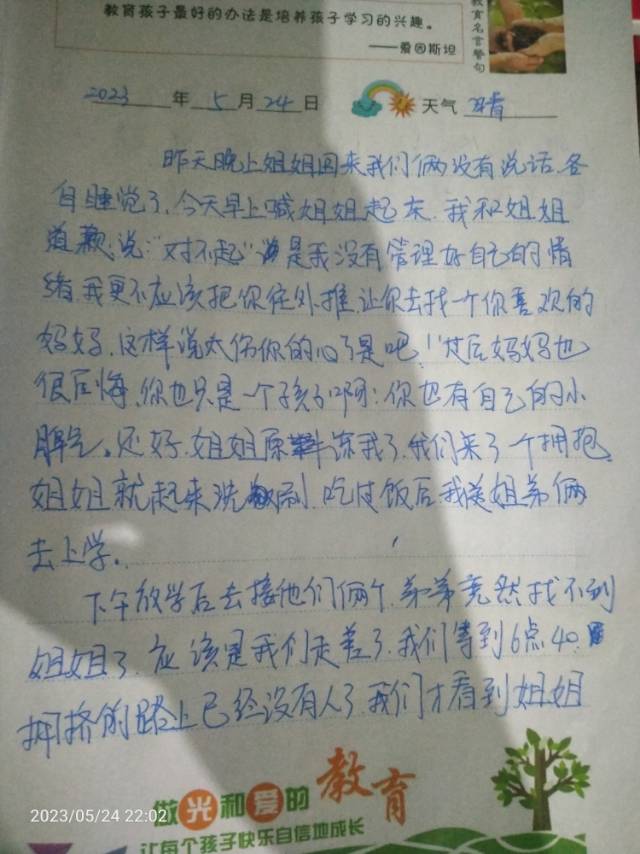 教育孩子最好的办法是培养孩子学习的兴趣。
——爱因斯坦
教育名言警句
2023年5月24日 天气 晴
昨天晚上姐姐回来我们俩没有说话,各
自睡觉了,今天早上喊姐姐起床,我和姐姐
道歉,说:“对不起”是我没有管理好自己的情
绪,我更不应该把你往外推,让你去找一个你喜欢的
妈妈,这样说太伤你的心了是吧!过后妈妈也
很后悔,你也只是一个孩子啊!你也有自己的小
脾气。还好,姐姐原谅我了,我们来了一个拥抱,
姐姐就起来洗刷,吃过饭后,我送姐弟俩
去上学。
下午放学后去接他们俩个,弟弟竟然找不到
姐姐了,应该是我们走差了,我们等到6点40,
拥挤的路上已经没有人了,我们才看到姐姐
做光和爱的教育
让每个孩子快乐自信地成长
2023/05/24 22:02